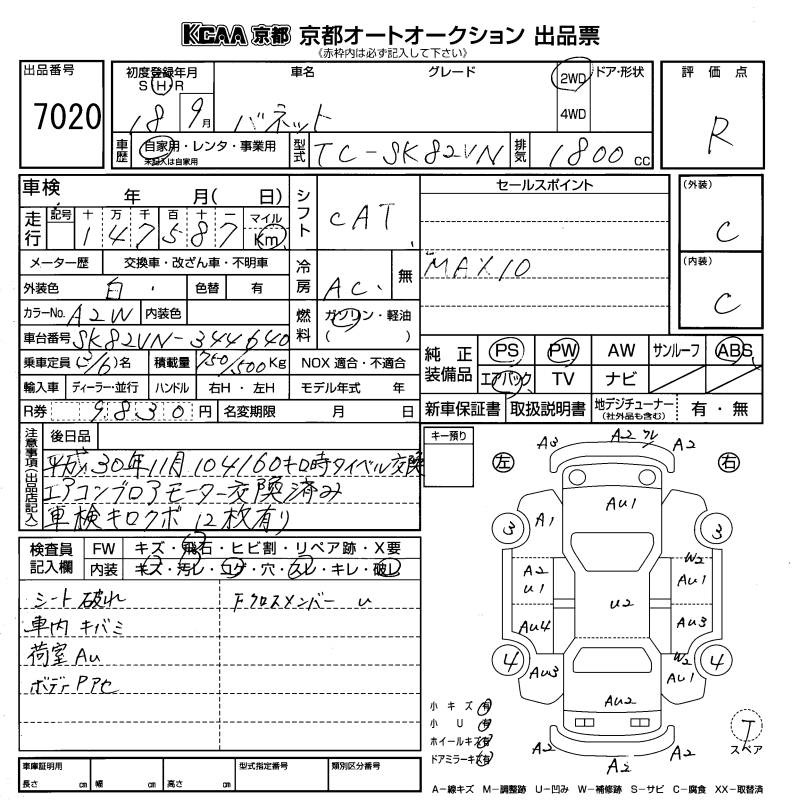 KCAA 京都 京都オートオークション 出品票
《赤枠内は必ず記入して下さい》
出品番号
7020
初度登録年月
S・H・R
18 9月
車名 グレード
バネット
2WD
4WD
ドア・形状
評価点
R
車歴
自家用・レンタ・事業用
未記入は自家用
型式
TC-SK82VN
排気
1800 cc
車検 年 月( 日)
走行
記号 十 万 千 百 十 一 マイル
1 4 7 5 8 7 Km
シフト
CAT
セールスポイント
MAX10
(外装)
C
(内装)
C
メーター歴 交換車・改ざん車・不明車
冷房
AC
無
外装色 白 色替 有
カラーNo. A2W 内装色
燃料
ガソリン・軽油
( )
車台番号 SK82VN-344640
乗車定員 (3/6)名 積載量 750/500 Kg NOX 適合・不適合
輸入車 ディーラー・並行 ハンドル 右H・左H モデル年式 年
R券 9830円 名変期限 月 日
純正装備品
PS PW AW サンルーフ ABS
エアバック TV ナビ
新車保証書 取扱説明書 地デジチューナー(社外品も含む) 有・無
注意事項(出品店記入)
後日品
平成30年11月104160キロ時タイベル交換
エアコンブロアモーター交換済み
車検キロクボ12枚有り
キー預り
左
右
A3 A2 ワレ A2
Au1
3 A1 3
A2 U1 W2 Au1
U2
Au4 Au3
4 Au3 W2 Au1 4
Au2
A2 A2 A2
T
スペア
検査員記入欄
FW キズ・飛石・ヒビ割・リペア跡・X要
内装 キズ・汚レ・コゲ・穴・スレ・キレ・破レ
シート破れ Fクロスメンバー u
車内キバミ
荷室Au
ボディPアセ
小キズ 有
小U 有
ホイールキズ 有
ドアミラーキズ 有
車庫証明用
長さ cm 幅 cm 高さ cm
型式指定番号
類別区分番号
A-線キズ M-調整跡 U-凹み W-補修跡 S-サビ C-腐食 XX-取替済